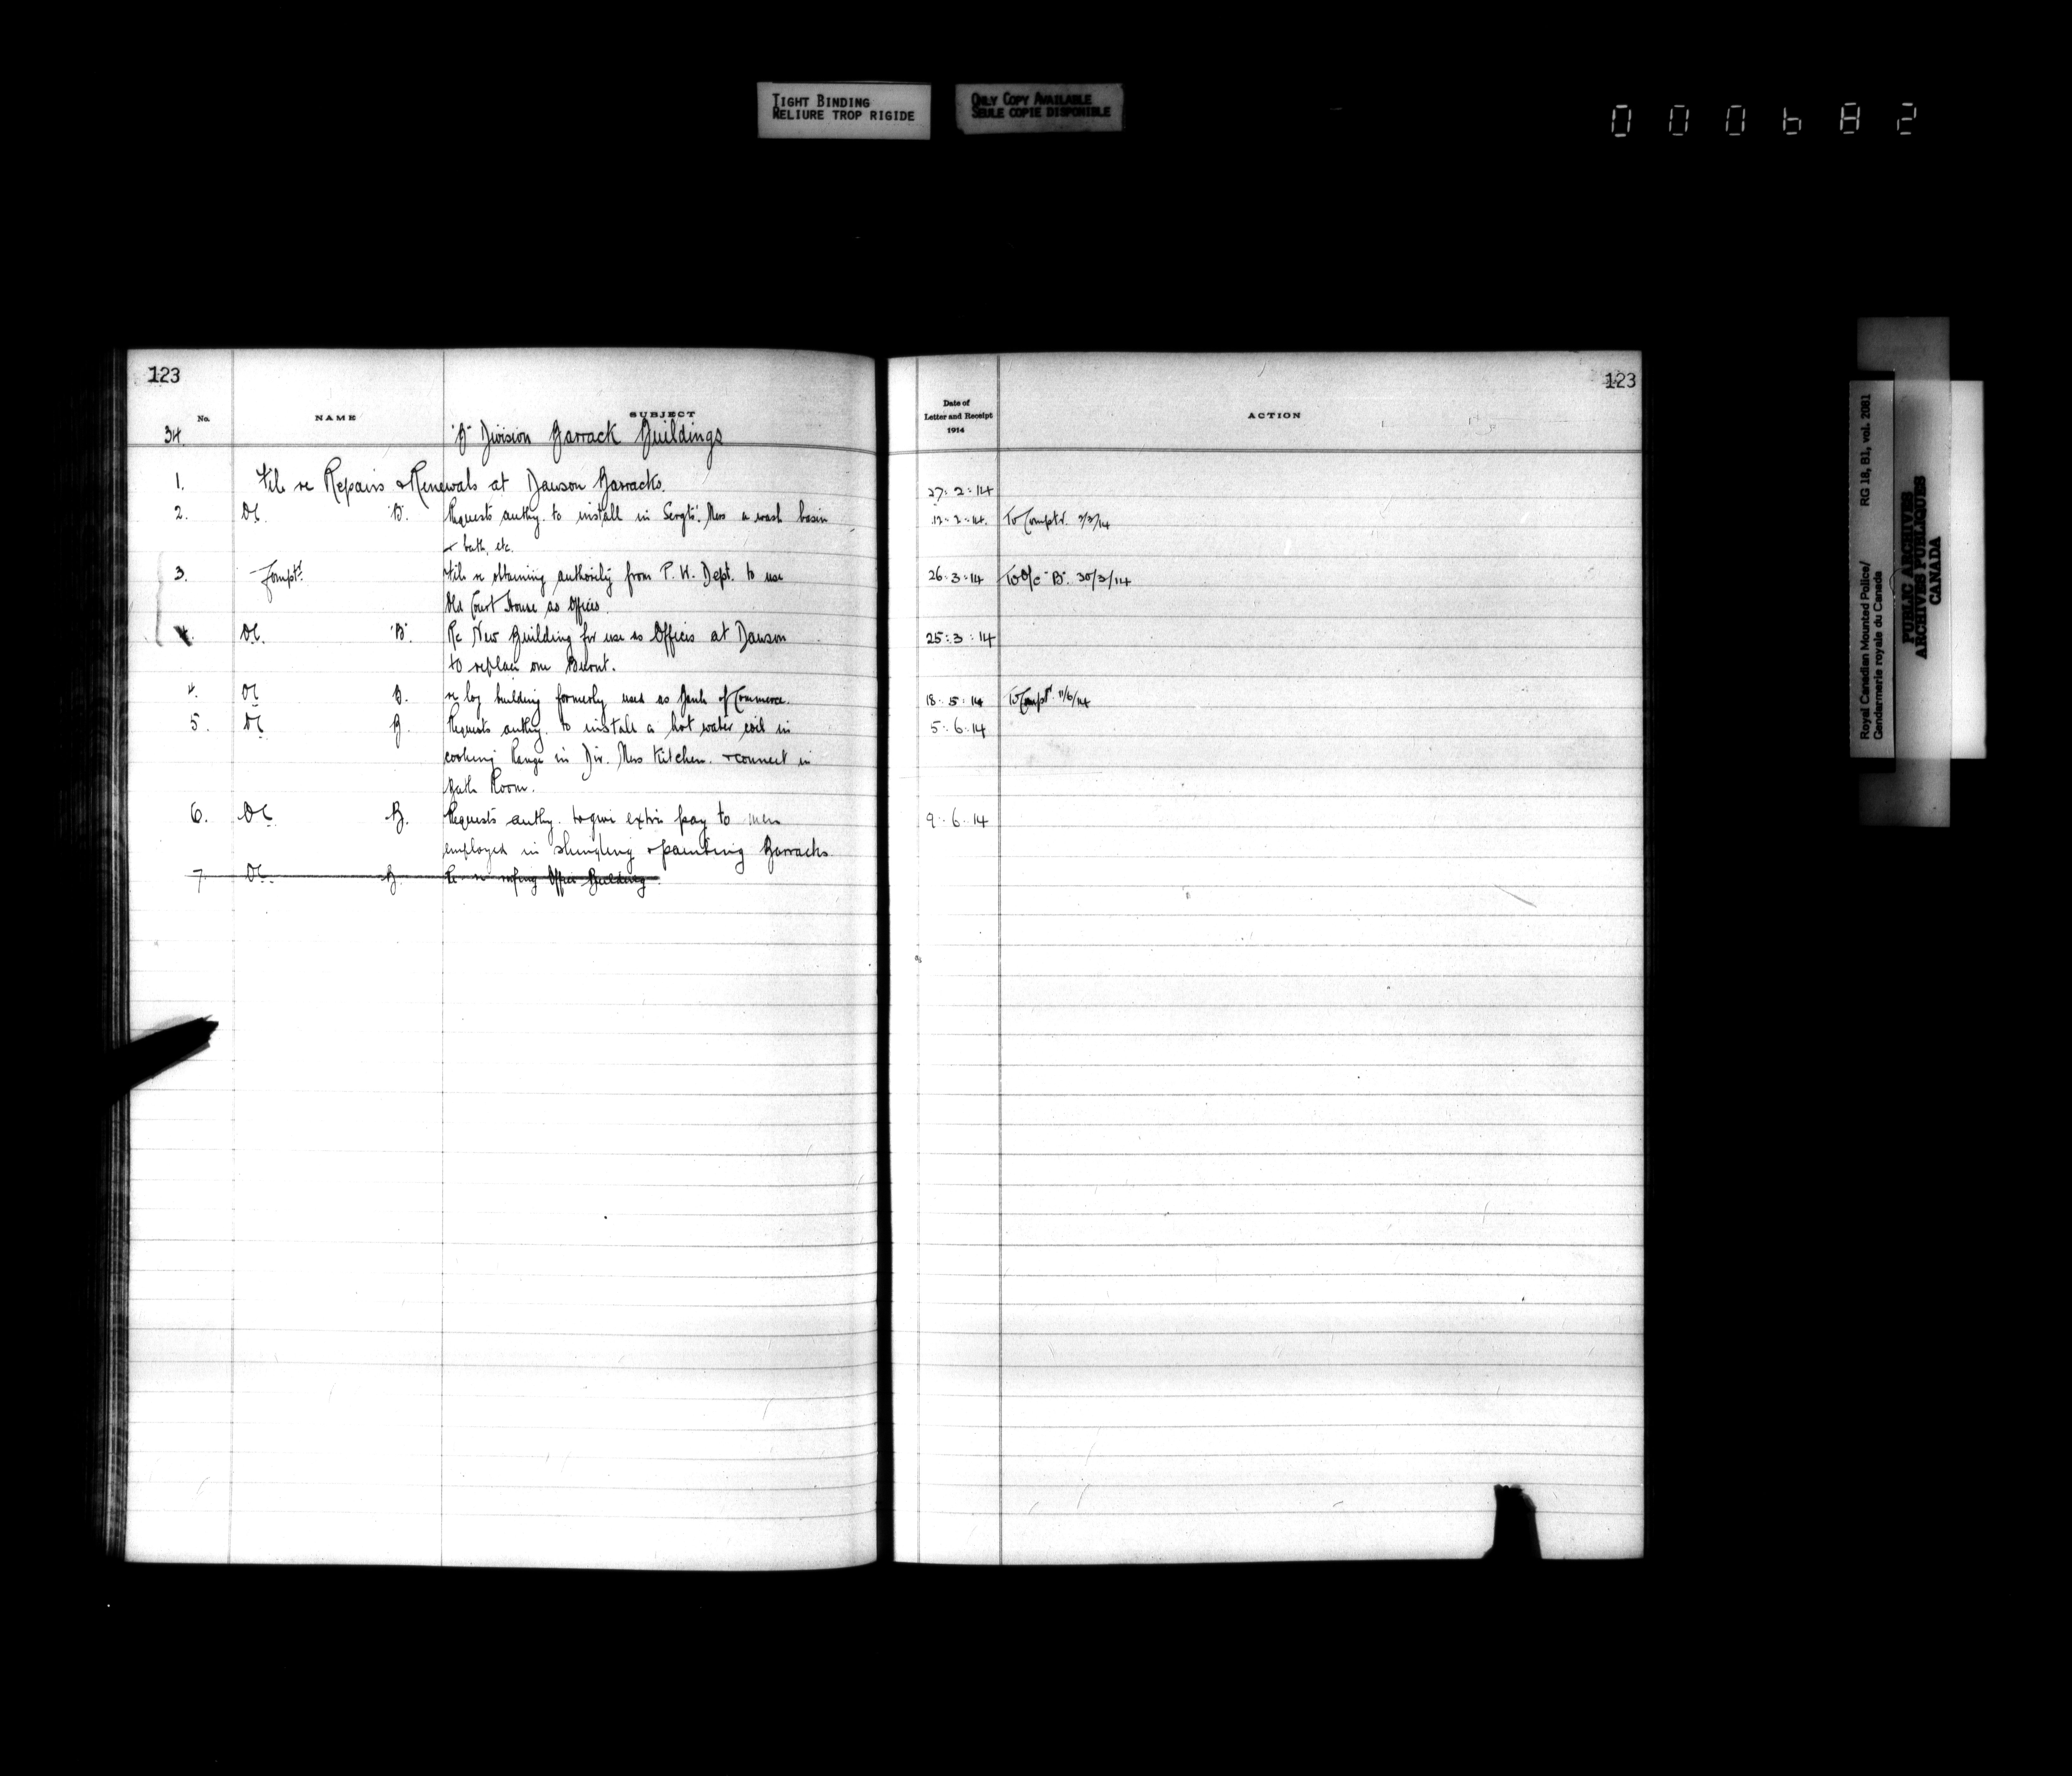 TIGHT BINDING
RELIURE TROP RIGIDE
ONLY COPY AVAILABLE
SEULE COPIE DISPONIBLE
000682
123
No.
NAME
SUBJECT
34. 'B' Division Barrack Buildings
1. File re Repairs & Renewals at Dawson Barracks.
2. OC. 'B'. Requests authy. to install in Sergts'. Mess a wash basin
& bath, etc.
3. Comptr. File re obtaining authority from P. W. Dept. to use
Old Court House as Offices.
4. OC. 'B' Re New Building for use as Offices at Dawson
to replace one Burnt.
4. OC B. re log building formerly used as Bank of Commerce.
5. OC B. Requests authy. to install a hot water coil in
cooking Range in Div. Mess Kitchen. & connect in
Bath Room.
6. OC. B. Requests authy. to give extra pay to men
employed in shingling & painting Barracks.
7. OC. B. re roofing Office Building.
123
Date of
Letter and Receipt
1914
ACTION
27.2.14
12.2.14. To Comptr. 3/3/14
26.3.14 To O/C "B". 30/3/14
25.3.14
18.5.14 To Comptr. 11/6/14
5.6.14
9.6.14
Royal Canadian Mounted Police/
Gendarmerie royale du Canada
RG 18, B1, vol. 2081
PUBLIC ARCHIVES
ARCHIVES PUBLIQUES
CANADA